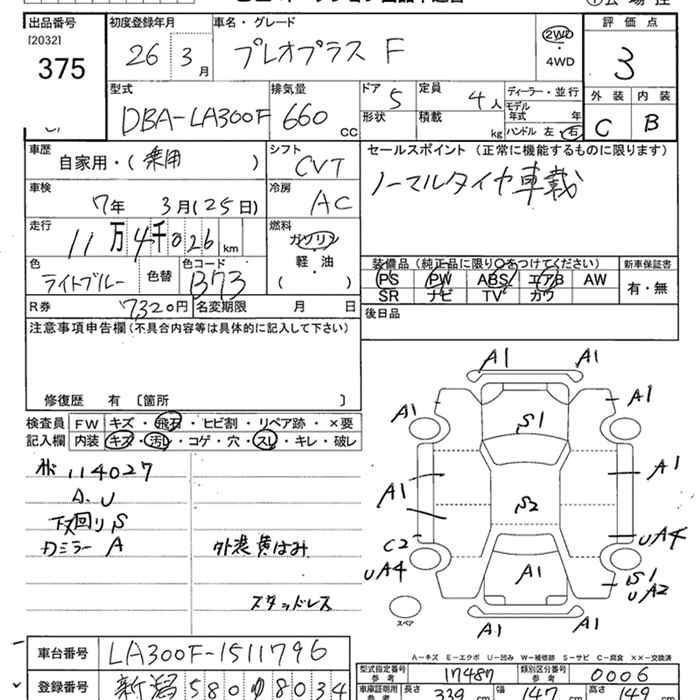 出品番号 初度登録年月 車名・グレード 評価点
[2032]
375 26 3月 プレオプラス F 2WD ・ 4WD 3
型式 排気量 ドア 定員 ディーラー・並行 外装 内装
DBA-LA300F 660 CC 5 4人 モデル年式 年 C B
形状 積載 kg ハンドル 左 右
車歴 シフト セールスポイント (正常に機能するものに限ります)
自家用・(乗用) CVT ノーマルタイヤ車載
車検 冷房
7年 3月(25日) AC
走行 燃料
11万4千026km ガソリン
軽・油
( )
色 色替 色コード
ライトブルー B73
装備品(純正品に限り○をつけてください) 新車保証書
PS PW ABS エアB AW 有・無
SR ナビ TV カワ
R券 7,320円 名変期限 月 日 後日品
注意事項申告欄(不具合内容等は具体的に記入して下さい)
修復歴 有 〔箇所 〕
検査員 FW キズ・飛石・ヒビ割・リペア跡・×要
記入欄 内装 キズ・汚レ・コゲ・穴・スレ・キレ・破レ
114027
A.U
下回りS
カミラー A 外装黄はみ
スタッドレス
A1 A1
A1 A1
S1
A1 A1
S2
C2 UA4
UA4 A1 S1
UA2
スペア
A1 A1
A-キズ E-エクボ U-凹み W-補修跡 S-サビ C-腐食 ××-交換済
車台番号 LA300F-1511796 型式指定番号 参考 17487 類別区分番号 参考 0006
登録番号 新潟 580 ゆ 8034 車庫証明用 参考 長さ 339 cm 幅 147 cm 高さ 149 cm